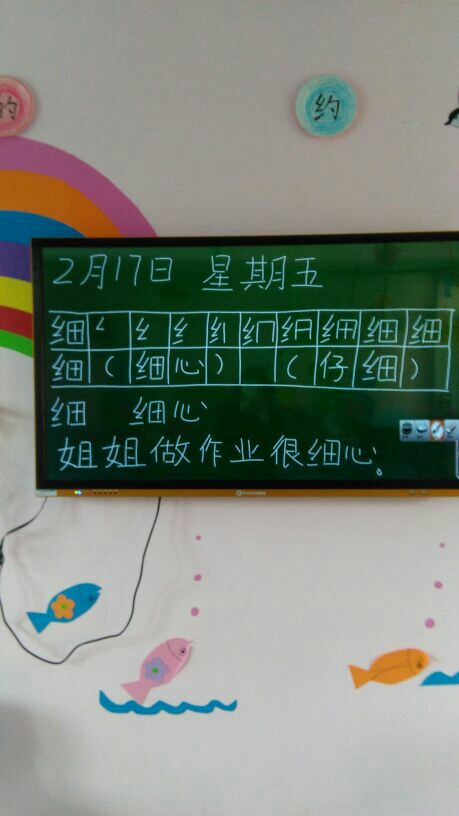 的 约
2月17日 星期五
细 𠃋 纟 纟 纟 细 细 细 细 细
细 ( 细 心 ) ( 仔 细 )
细 细心
姐姐做作业很细心。